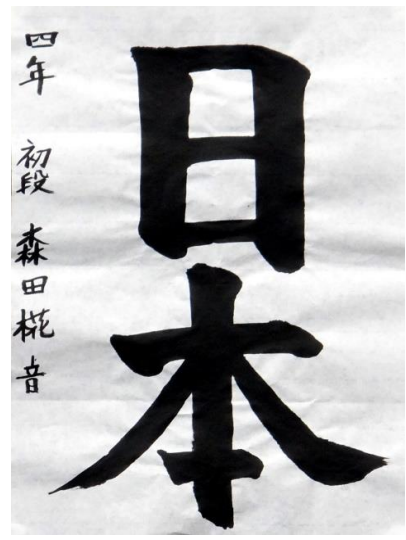 日本
四年 初段 森田椛音